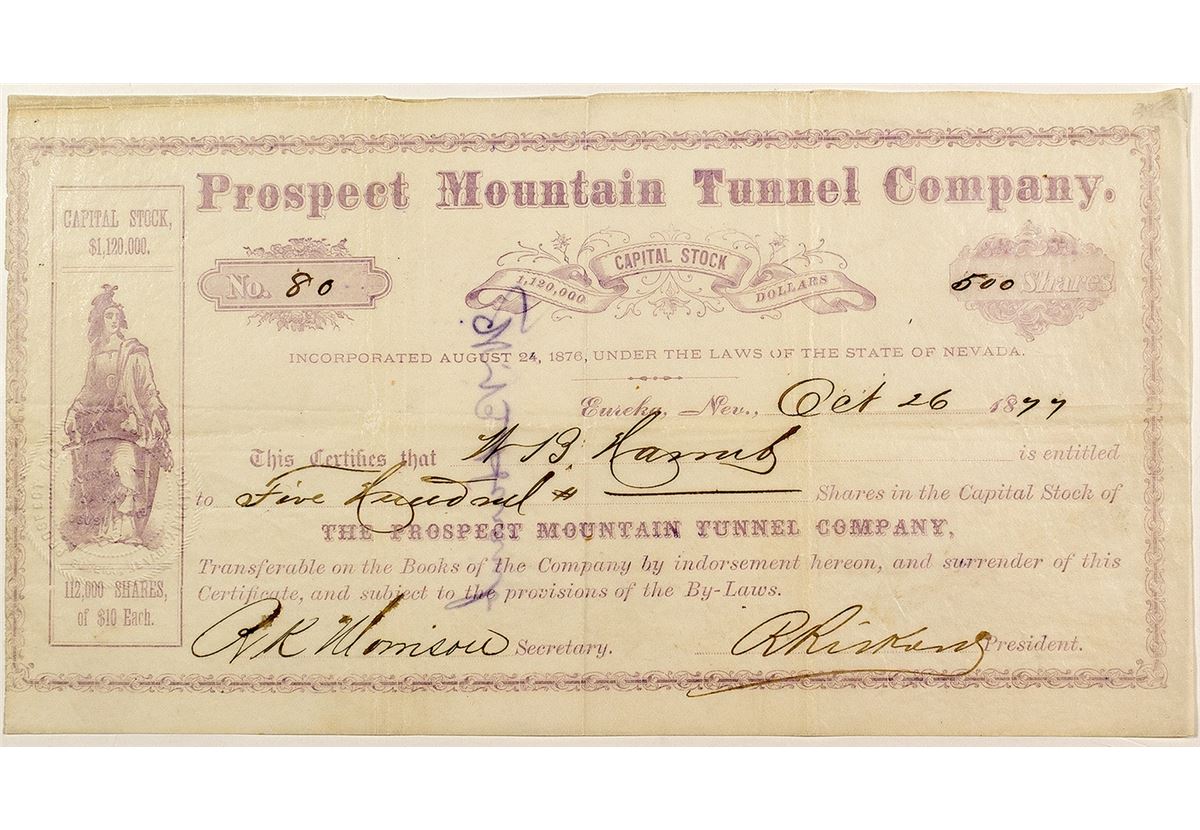 Prospect Mountain Tunnel Company.
CAPITAL STOCK,
$1,120,000.
No. 80
CAPITAL STOCK
1,120,000 DOLLARS
500 Shares
INCORPORATED AUGUST 24, 1876, UNDER THE LAWS OF THE STATE OF NEVADA.
Eureka, Nev., Oct 26 1877
This Certifies that W B is entitled
to Five Hundred Shares in the Capital Stock of
THE PROSPECT MOUNTAIN TUNNEL COMPANY,
Transferable on the Books of the Company by indorsement hereon, and surrender of this
Certificate, and subject to the provisions of the By-Laws.
112,000 SHARES,
of $10 Each.
R K Morrison Secretary.
President.